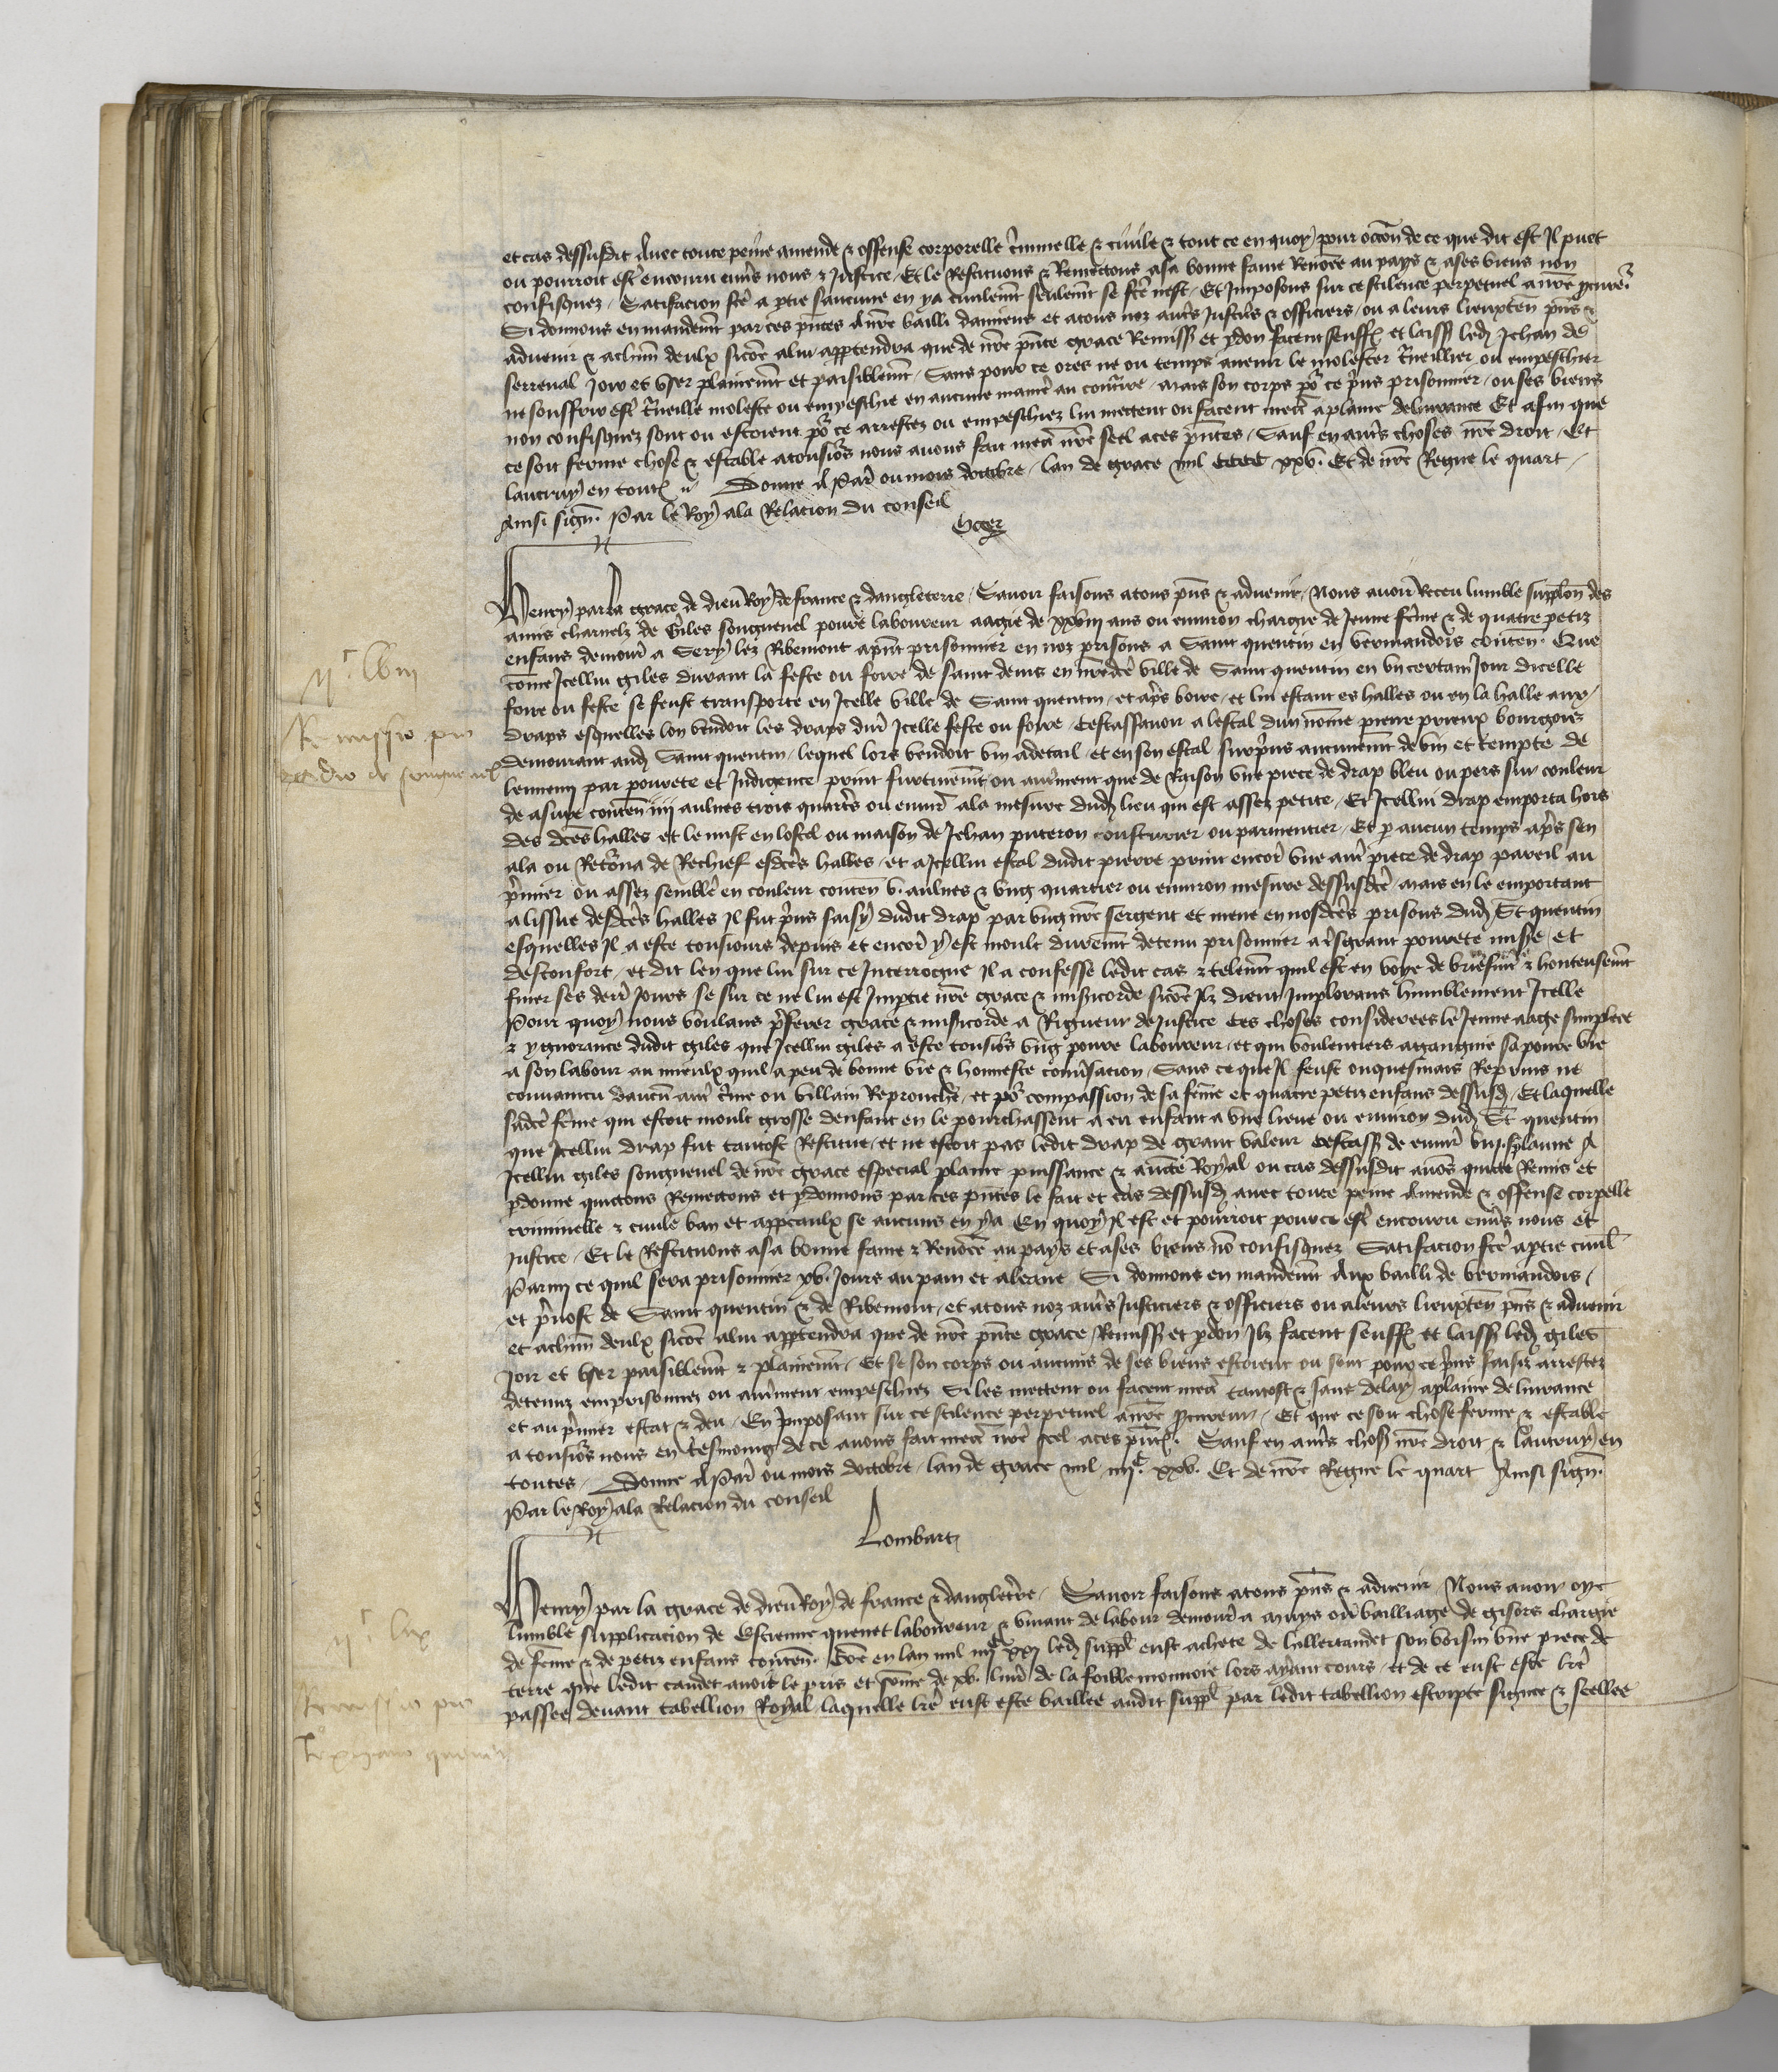 et cas dessusdit Avec toute peine amende & offense corporelle c'iminelle & civile & tout ce en quoy pour occōn de ce que dit est Il puet
ou pourroit est' encouru env's nous & Justice. Et le Restituons & Remectons a sa bonne fame Renōee au pays & a ses biens non
confisquez. Satifacion fc'e a p'tie s'aucune en y a civilemt seulemt se fc'e n'est. Et Imposons sur ce scilence perpetuel a nr̄e p'cureur
Si donnons en mandemt par ces p'ntes A nr̄e bailli damiens et a tous noz aut's Justic's & officiers ou a leurs lieuxten̄ p'ns &
advenir & a chūn deulx sicōe a lui app'tendra que de nr̄e p'nte grace Remiss̄ et p'don facent seuff' et laiss' led' Jehan de
serreval Joir et User plainemt et paisiblemt. Sans pour ce ores ne ou temps avenir le molester t'veillier ou empeschier
ne souffrir est' t'veillie moleste ou empeschie en aucune manie' au contr'e. mais son corps po' ce p'ns prisonnier. ou ses biens
non confisquez sont ou estoient po' ce arrestez ou empeschiez lui mettent ou facent mett' a plaine delivrance Et afin que
ce soit ferme chose & estable a tousio's nous avons fait mett' nr̄e seel a ces p'ntes. Sauf en aut's choses nr̄e droit. Et
lautruy en tout'. Donne A Par' ou mois doctobre. lan de grace mil CCCC xxv. Et de nr̄e Regne le quart.
Ainsi sign̄. Par le Roy a la Relacion du conseil

Henry par la grace de dieu Roy de france & dangleterre. Savoir faisons a tous p'ns & advenir. Nous avoir Receu lumble supplōn des
amis charnelz de Giles songneuel povre laboureur aagie de xxviii ans ou environ chargie de Jeune fēme & de quatre petiz
enfans demour' a Sery lez Ribemont a p'nt prisonnier en noz prisons a Saint quentin en vermandois conten̄. Que
cōme Jcellui giles durant la feste ou foire de saint denis en nr̄edc'e ville de Saint quentin en un certain Jour dicelle
foire ou feste se feust transporte en Jcelle ville de Saint quentin. et ap's boire. et lui estant es halles ou en la halle aux
draps esquelles lon vendoit les draps dur' Jcelle feste ou foire. cestassavoir a lestal dun nōme pierre prieux bourgois
demourant aud' Saint quentin. lequel lors vendoit vin a detail. et en son estal surp'ns aucunemt de vin et tempte de
lennemj par povrete et Indigence print furtivemt ou aut'ment que de Raison une piece de drap bleu ou pers sur couleur
de asure conten̄ iiij aulnes trois quart's ou envir' a la mesure dud' lieu qui est assez petite. Et Jcellui drap emporta hors
des dc'es halles et le mist en lostel ou maison de Jehan puteron cousturier ou parmentier. Et p' aucun temps ap's sen
ala ou Reto'na de Rechief esdc'es halles. et a Jcellui estal dudit pierre print encor' une aut' piece de drap pareil au
p'mier ou assez semble' en couleur conten̄ v. aulnes & ung quartier ou environ mesure dessusdc'e. mais en le emportant
a lissue desdc'es halles Il fut p'ns saisy dudit drap par ung nr̄e sergent et mene en nosdc'es prisons dud' St quentin
esquelles Il a este tousiours depuis et encor' y est moult duremt detenu prisonnier a t'sgrant povrete mis'e. et
desconfort. et dit len que lui sur ce Interrogue Il a confesse ledit cas & telemt quil est en voye de briefmt & honteusemt
finer ses dern' Jours se sur ce ne lui est Imp'tie nr̄e grace & mis'icorde sicōe Ilz dient Implorans humblement Jcelle
Pour quoy nous voulans p'ferer grace & mis'icorde a Rigueur de Justice Ces choses considerees le Jeune aage simplece
& ygnorance dudit giles que Jcellui giles a este tousio's ung povre laboureur. et qui voulentiers a gaigne sa povre vie
a son labour au mieulx quil a peu de bonne vie & honneste conv'sacion. Sans ce que Il feust onquesmais Reprins ne
convaincu daucun aut' c'ime ou villain Reprouche. et po' compassion de sa fēme et quatre petiz enfans dessusd'. Et laquelle
sadc'e fēme qui estoit moult grosse denfant en le pourchassent a eu enfant a une lieue ou environ dud' St quentin
que Jcellui drap fut tantost Restitue. et ne estoit pas ledit drap de grant valeur cestass' de envir' viij s' laune A
Jcellui giles songneuel de nr̄e grace especial plaine puissance & auctē Royal ou cas dessusdit avōs quicte Remis et
p'donne quictons Remectons et p'donnons par ces p'ntes le fait et cas dessusd' avec toute peine Amende & offense corpelle
criminelle & civile ban et appeaulx se aucuns en y a En quoy Il est et pourroit pour ce est' encouru env's nous et
Justice. Et le Restituons a sa bonne fame & Renōee au pays et a ses biens nō confisquez Satifacion fc'e a p'tie civil'
Parmi ce quil sera prisonnier xv. Jours au pain et a leaue. Si donnons en mandemt Aux bailli de vermandois.
et p'vost de Saint quentin & de Ribemont. et a tous noz aut's Justiciers & officiers ou a leurs lieuxten̄ p'ns & advenir
et a chūn deulx sicōe a lui app'tendra que de nr̄e p'nte grace Remiss' et p'don Ilz facent seuff' et laiss' led' giles
Joir et User paisiblemt & plainemt. Et se son corps ou aucuns de ses biens estoient ou sont pour ce p'ns saisiz arrestez
detenuz emprisonnez ou aut'ment empeschiez Si les mettent ou facent mett' tantost & sans delay a plaine delivrance
et au p'mier estat & deu. En Imposant sur ce scilence perpetuel a nr̄e p'cureur. Et que ce soit chose ferme & estable
a tousio's nous en tesmoing de ce avons fait mett' nr̄e seel a ces p'nt'. Sauf en aut's chos' nr̄e droit & lautruy en
toutes. Donne A Par' ou mois doctobre. lan de grace mil iiijc xxv. Et de nr̄e Regne le quart Ainsi sign̄.
Par le Roy a la Relacion du conseil
Lombart

Henry par la grace de dieu Roy de france & dangleterre. Savoir faisons a tous p'ns & advenir Nous avoir oye
lumble supplicacion de Estienne quenet laboureur & vivant de labour demour' a mays ou bailliage de gisors chargie
de fēme & de petiz enfans conten̄. Cōe en lan mil iiijc xxj led' suppl' eust achete de hillet caudet son voisin une piece de
terre que ledit caudet avoit le pris et sōme de xv. livr' de la foible monnoie lors ayant cours. et de ce eust este lr̄e
passee devant tabellion Royal laquelle lr̄e eust este baillee audit suppl' par ledit tabellion escripte signee & seellee

ijc lviij
Remissio pro
Egidio de songneuel

ijc lix
Remissio pro
Stephano quenet